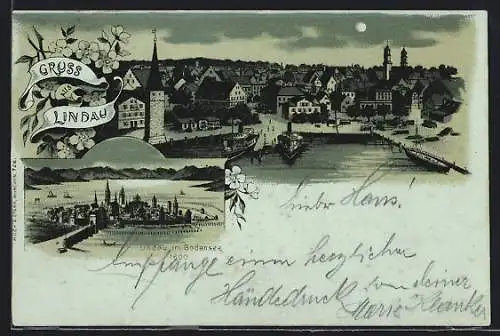 GRUSS
AUS
LINDAU
Lindau im Bodensee
1600
Lieber Hans!
Empfange einen herzlichen
Händedruck von deiner
Marie